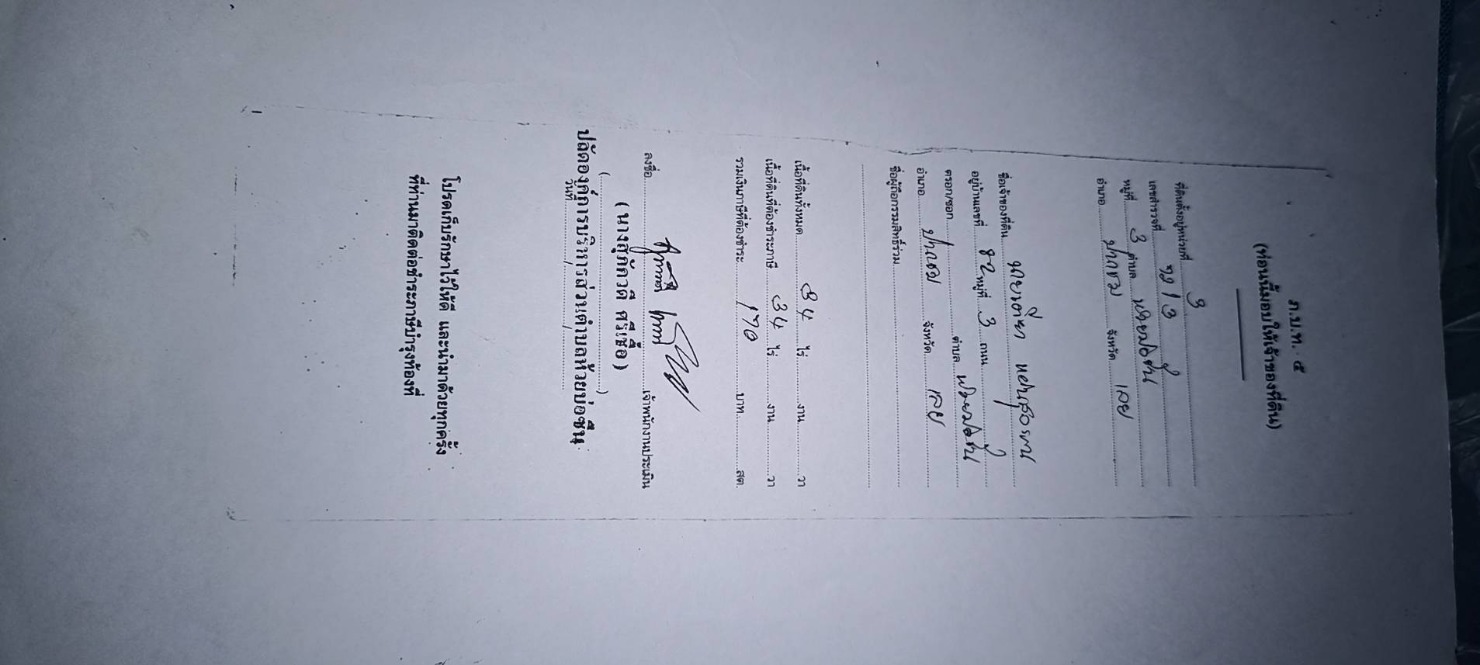 ภ.บ.ท. ๕
(ท่อนนี้มอบให้เจ้าของที่ดิน)
ที่ดินตั้งอยู่หน่วยที่ 3
เลขสำรวจที่
หมู่ที่ 3 ตำบล ห้วยบ่อซืน
อำเภอ ปากชม จังหวัด เลย
ชื่อเจ้าของที่ดิน
อยู่บ้านเลขที่ 82 หมู่ที่ 3 ถนน
ตรอก/ซอย ตำบล ห้วยบ่อซืน
อำเภอ ปากชม จังหวัด เลย
ชื่อผู้ถือกรรมสิทธิ์ร่วม
เนื้อที่ดินทั้งหมด 34 ไร่ งาน วา
เนื้อที่ดินที่ต้องชำระภาษี 34 ไร่ งาน วา
รวมเงินภาษีที่ต้องชำระ 170 บาท สต.
ลงชื่อ เจ้าพนักงานประเมิน
(นางสุภัควดี ศรีเชื้อ)
( )
ปลัดองค์การบริหารส่วนตำบลห้วยบ่อซืน
วันที่
โปรดเก็บรักษาไว้ให้ดี และนำมาด้วยทุกครั้ง
ที่ท่านมาติดต่อชำระภาษีบำรุงท้องที่